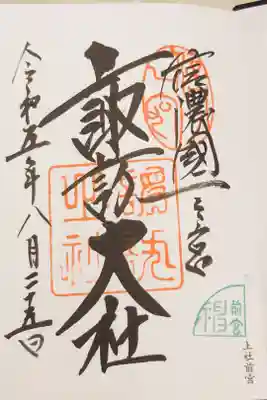 信濃國一之宮
諏訪大社
令和五年八月二十五日
前宮
上社前宮